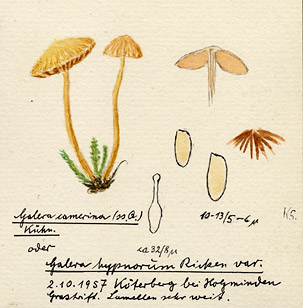 Galera camerina (ss. Q.)
Kühn.
10-13/5-6 µ
KS.
oder
ca 32/8 µ
Galera hypnorum Ricken var.
2.10.1957 Köterberg bei Holzminden
Grastrift. Lamellen sehr weit.